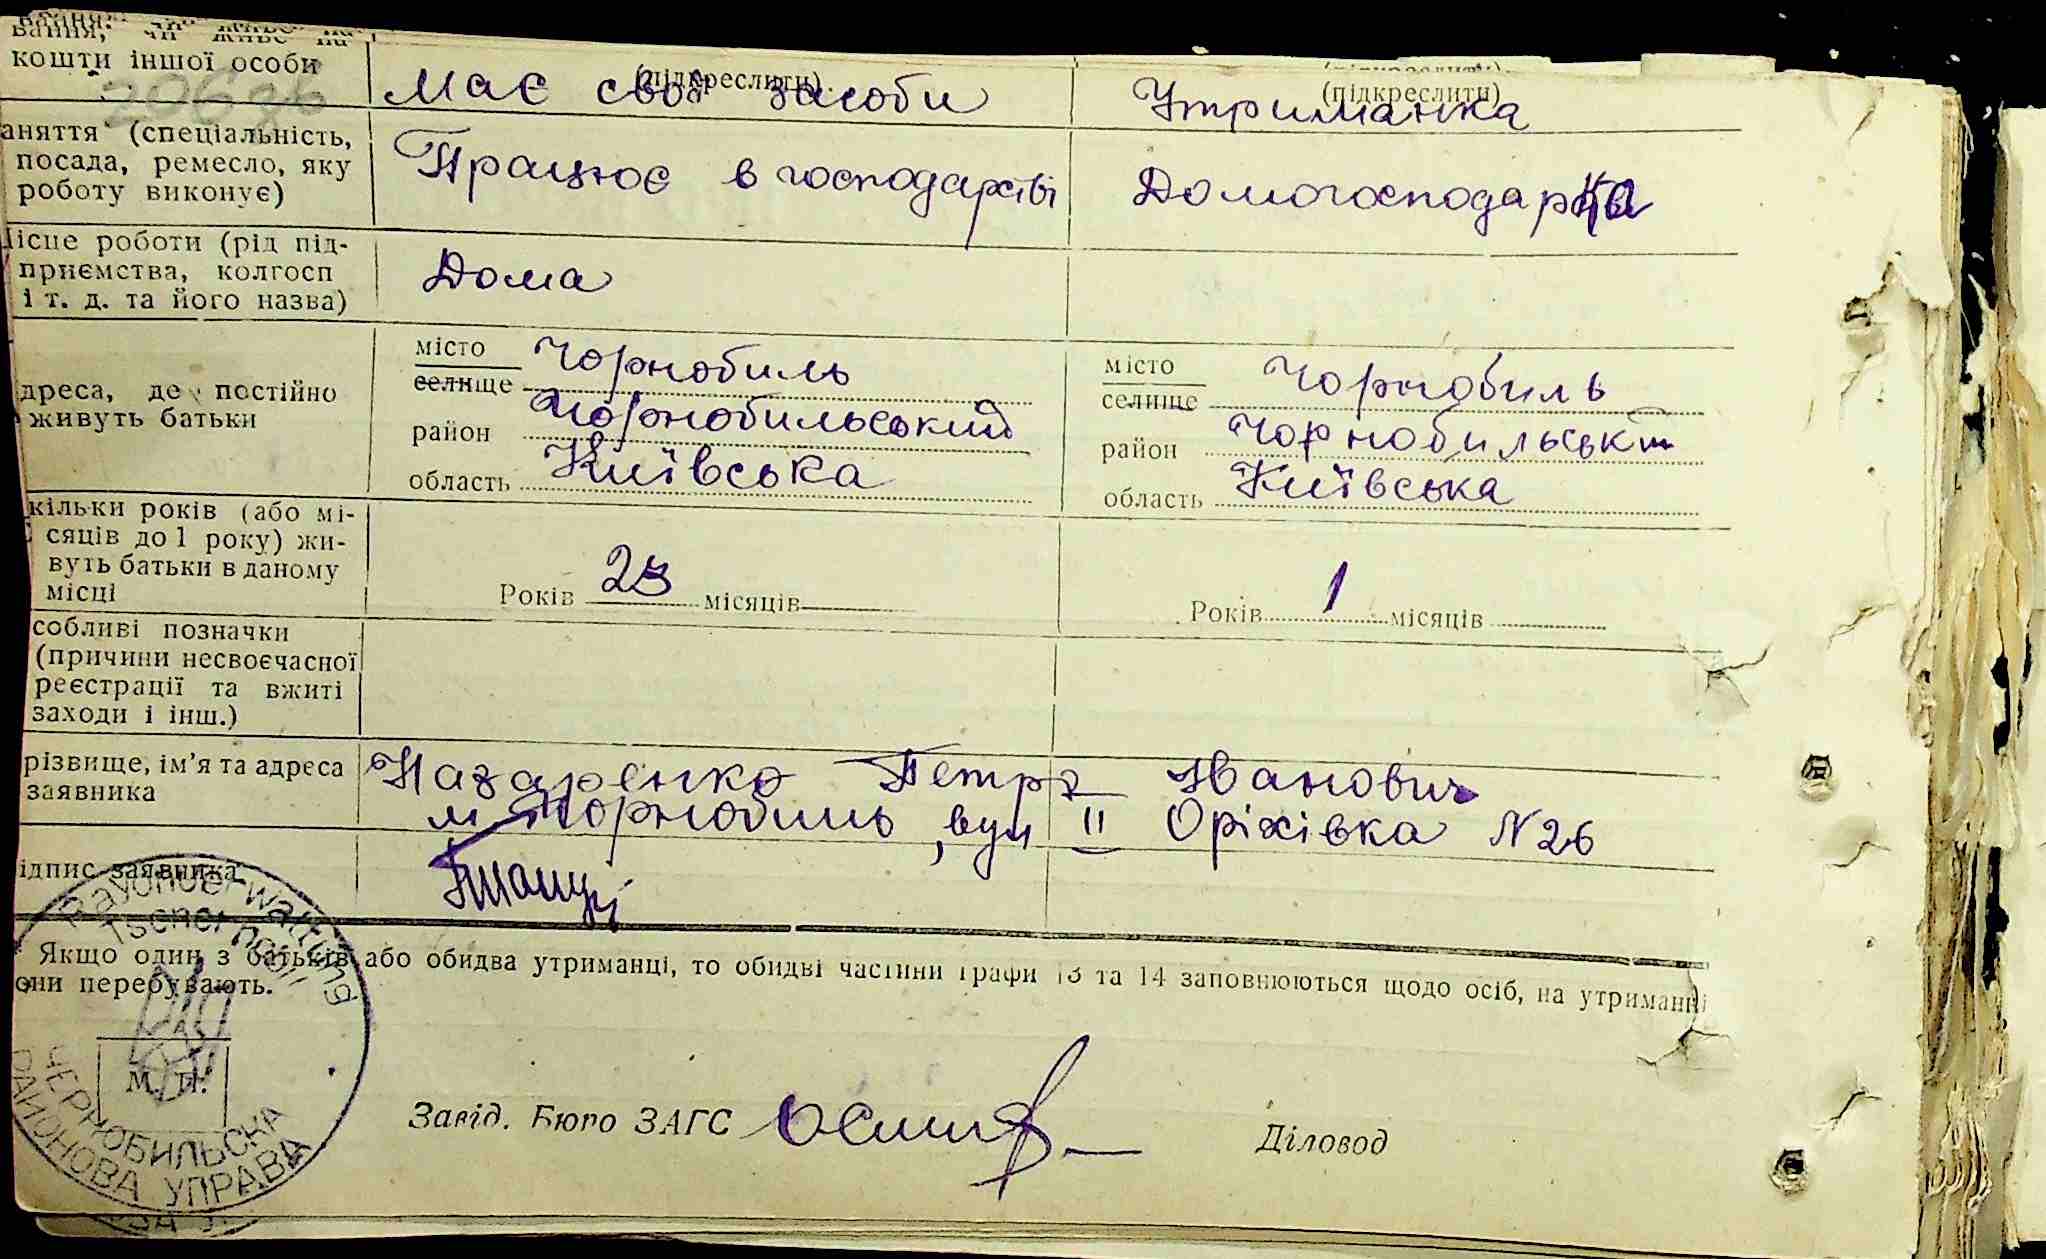 вання, чи живе на
кошти іншої особи
(підкреслити)
(підкреслити)
206 зв
Має свої засоби
Утриманка
аняття (спеціальність,
посада, ремесло, яку
роботу виконує)
Працює в господарстві
Домогосподарка
ісце роботи (рід під-
приємства, колгосп
і т. д. та його назва)
Дома
дреса, де постійно
живуть батьки
місто
селище
Чорнобиль
район
Чорнобильський
область
Київська
місто
селище
Чорнобиль
район
Чорнобильськ
область
Київська
кільки років (або мі-
сяців до 1 року) жи-
вуть батьки в даному
місці
Років 23 місяців
Років 1 місяців
собливі позначки
(причини несвоєчасної
реєстрації та вжиті
заходи і інш.)
різвище, ім'я та адреса
заявника
Назаренко Петро Іванович
м Чорнобиль, вул II Оріхівка N 26
ідпис заявника
Якщо один з батьків або обидва утриманці, то обидві частини графи 13 та 14 заповнюються щодо осіб, на утриманні
они перебувають.
Rayonverwaltung
Tschernobil
М. П.
ЧЕРНОБИЛЬСКА
РАЙОНОВА УПРАВА
Завід. Бюро ЗАГС
Діловод